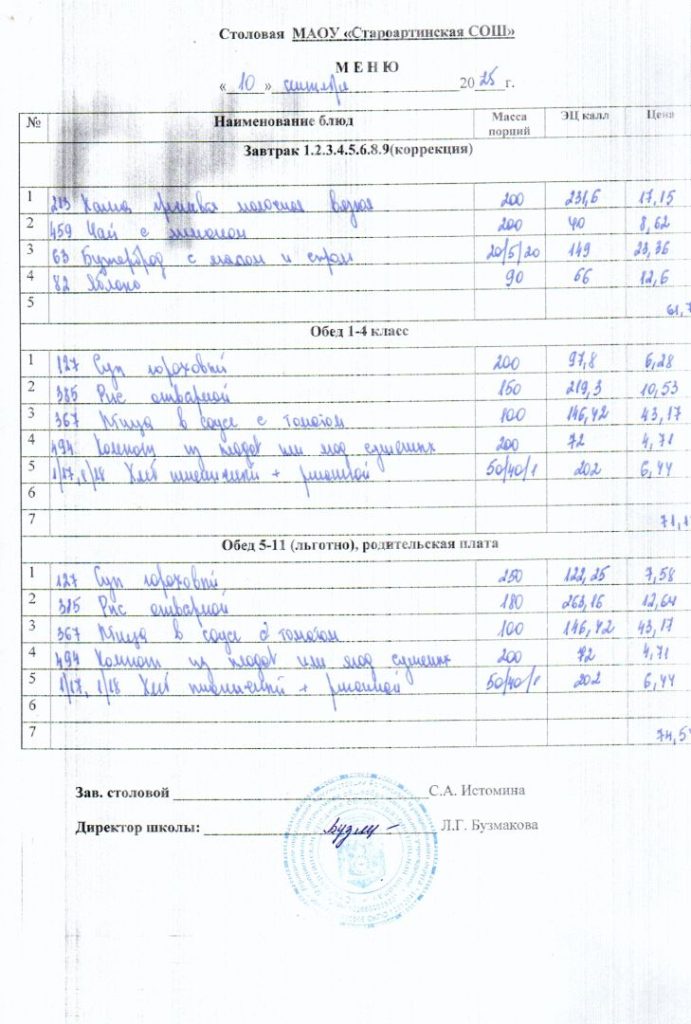 Столовая МАОУ «Староартинская СОШ»
М Е Н Ю
« 10 » сентября 2025 г.
№ Наименование блюд Масса порций ЭЦ калл Цена
Завтрак 1.2.3.4.5.6.8.9(коррекция)
1 213 Каша молочная вязкая 200 231,6 17,15
2 459 Чай с лимоном 200 40 8,62
3 63 Бутерброд с маслом и сыром 20/5/20 149 23,36
4 82 Яблоко 90 66 12,6
5 61,7
Обед 1-4 класс
1 127 Суп гороховый 200 97,8 6,28
2 385 Рис отварной 150 219,3 10,53
3 367 Птица в соусе с томатом 100 146,42 43,17
4 494 Компот из плодов или ягод сушеных 200 72 4,71
5 1/17, 1/18 Хлеб пшеничный + ржаной 50/40/1 202 6,44
6
7 71,1
Обед 5-11 (льготно), родительская плата
1 127 Суп гороховый 250 122,25 7,58
2 385 Рис отварной 180 263,16 12,64
3 367 Птица в соусе с томатом 100 146,42 43,17
4 494 Компот из плодов или ягод сушеных 200 72 4,71
5 1/17, 1/18 Хлеб пшеничный + ржаной 50/40/1 202 6,44
6
7 74,5
Зав. столовой С.А. Истомина
Директор школы: Л.Г. Бузмакова